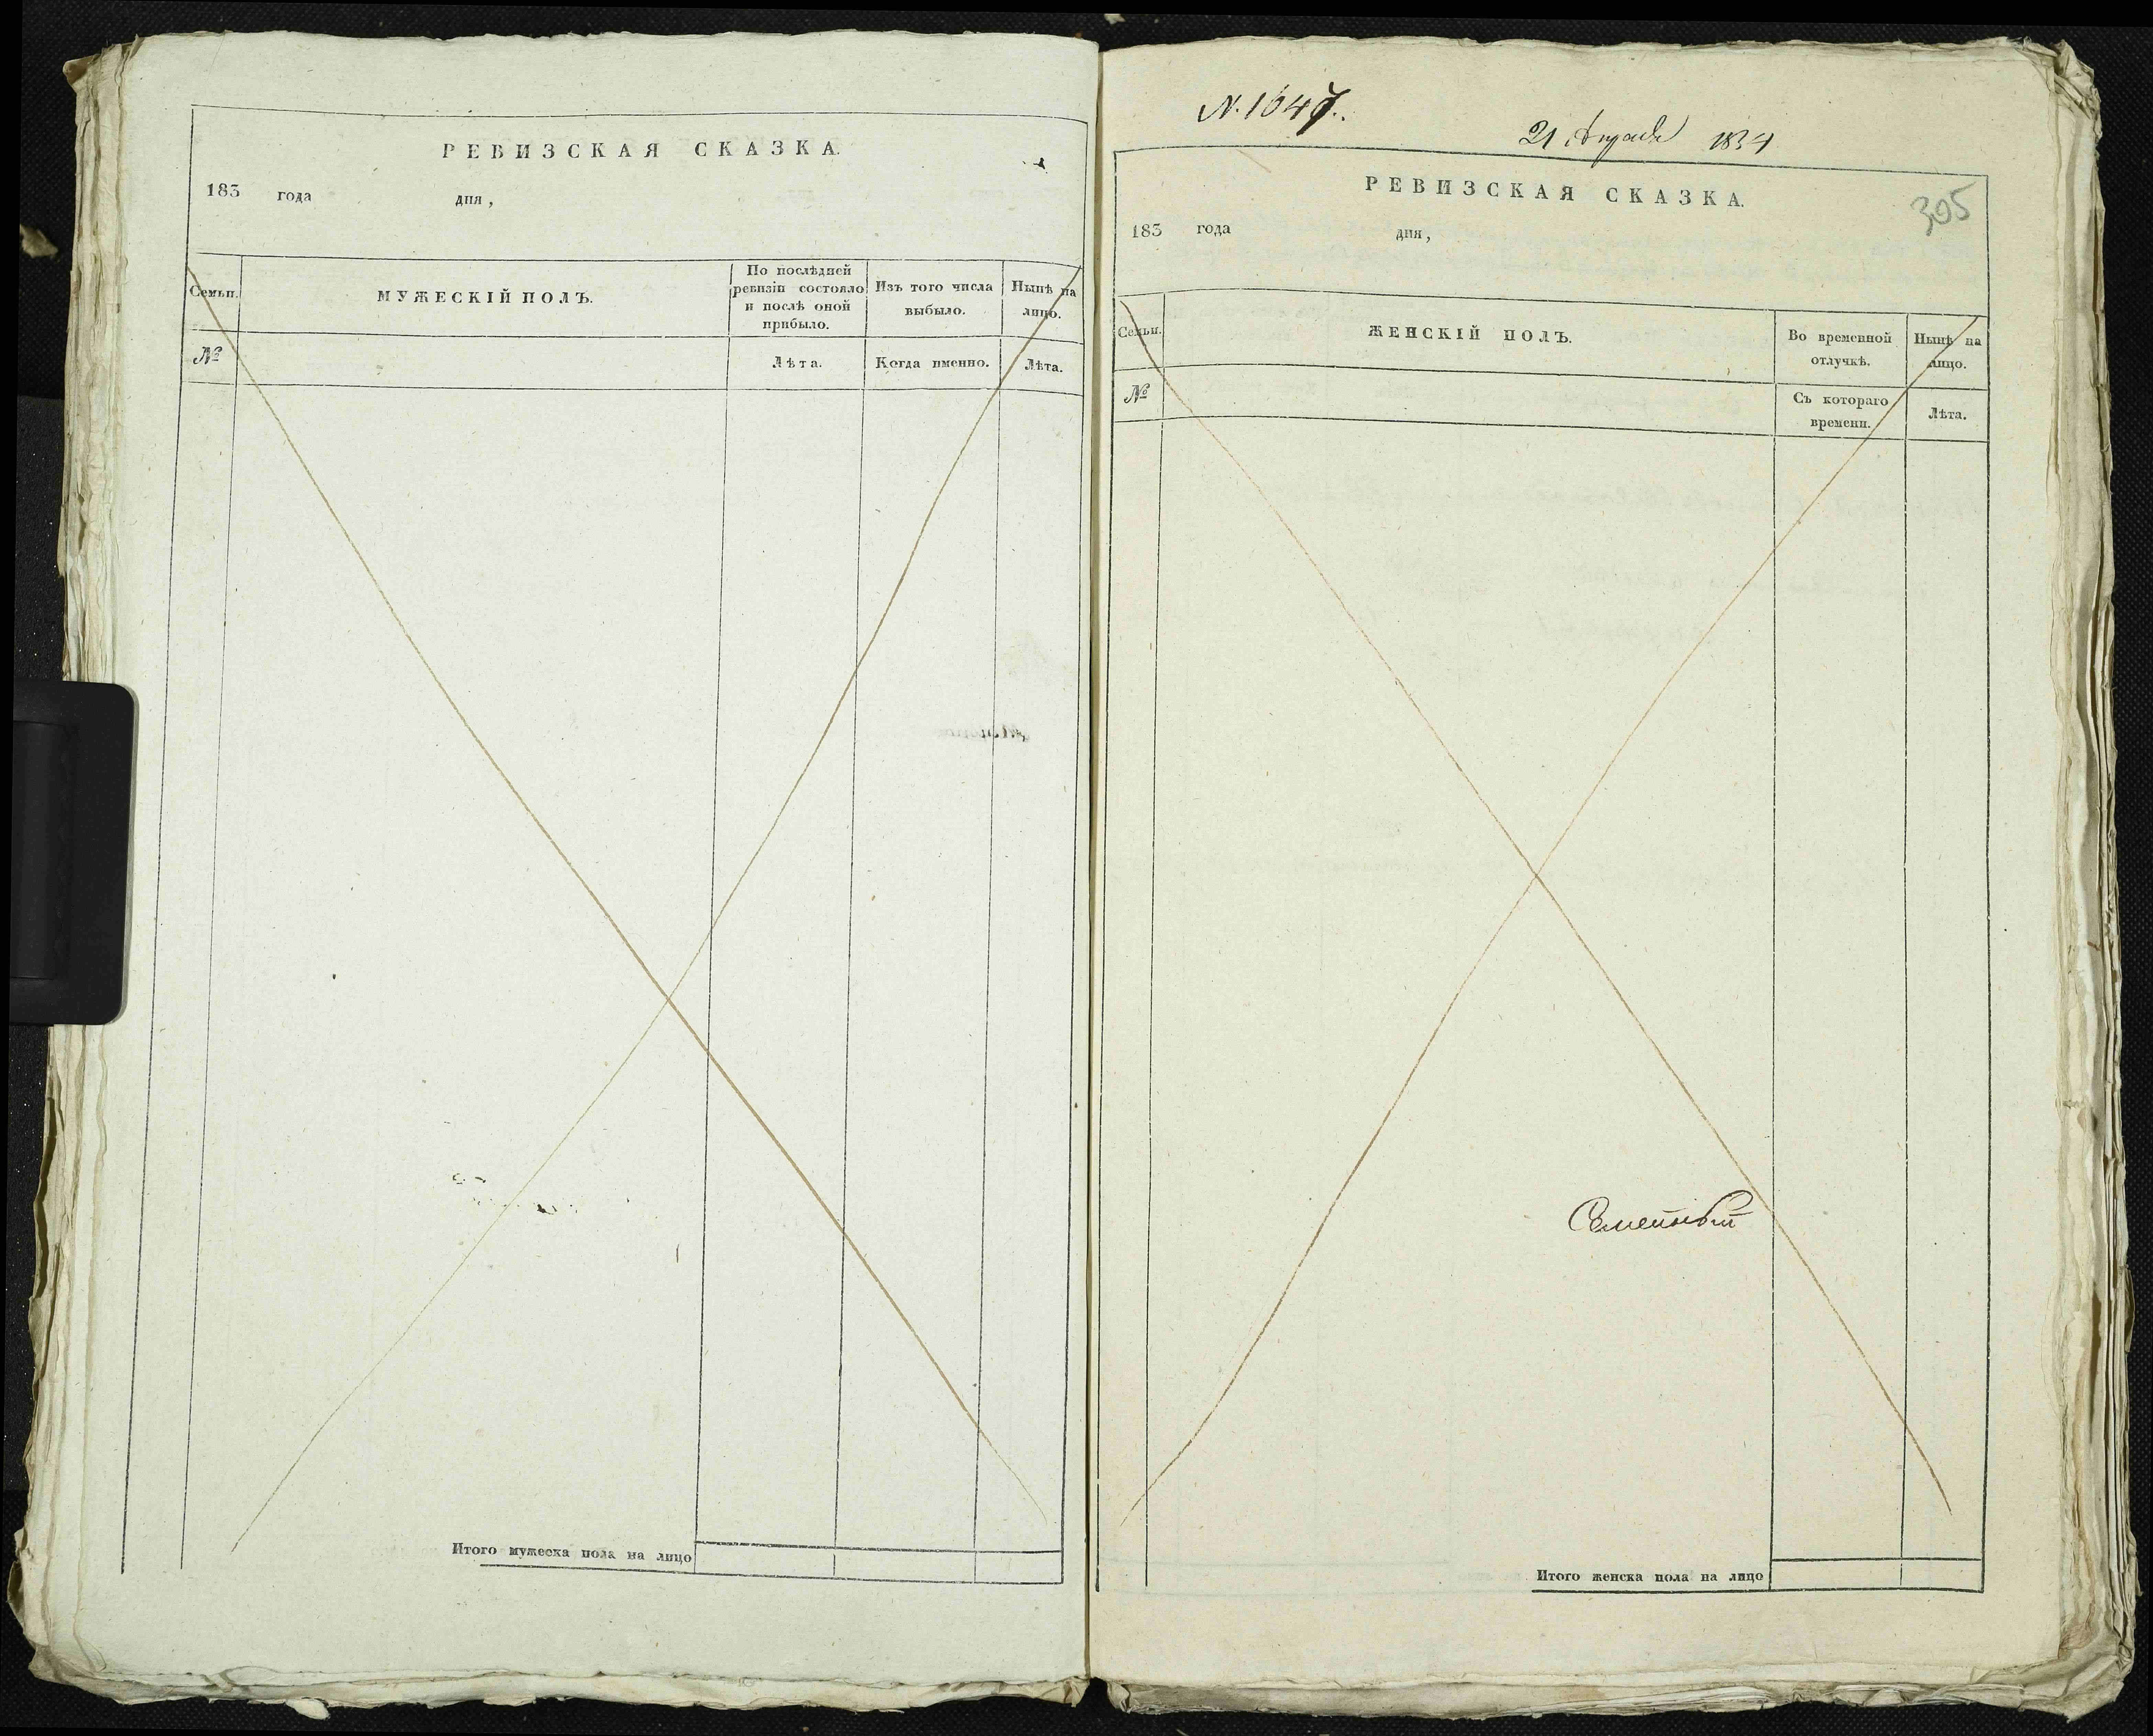 РЕВИЗСКАЯ СКАЗКА.
183 года дня,
Семьи.
МУЖЕСКІЙ ПОЛЪ.
По послѣдней
ревизіи состояло
и послѣ оной
прибыло.
Изъ того числа
выбыло.
Нынѣ на
лицо.
№
Лѣта.
Когда именно.
Лѣта.
Итого мужеска пола на лицо
N. 1647.
21 Апреля 1834
РЕВИЗСКАЯ СКАЗКА.
305
183 года дня,
Семьи.
ЖЕНСКІЙ ПОЛЪ.
Во временной
отлучкѣ.
Нынѣ на
лицо.
№
Съ котораго
времени.
Лѣта.
Итого женска пола на лицо